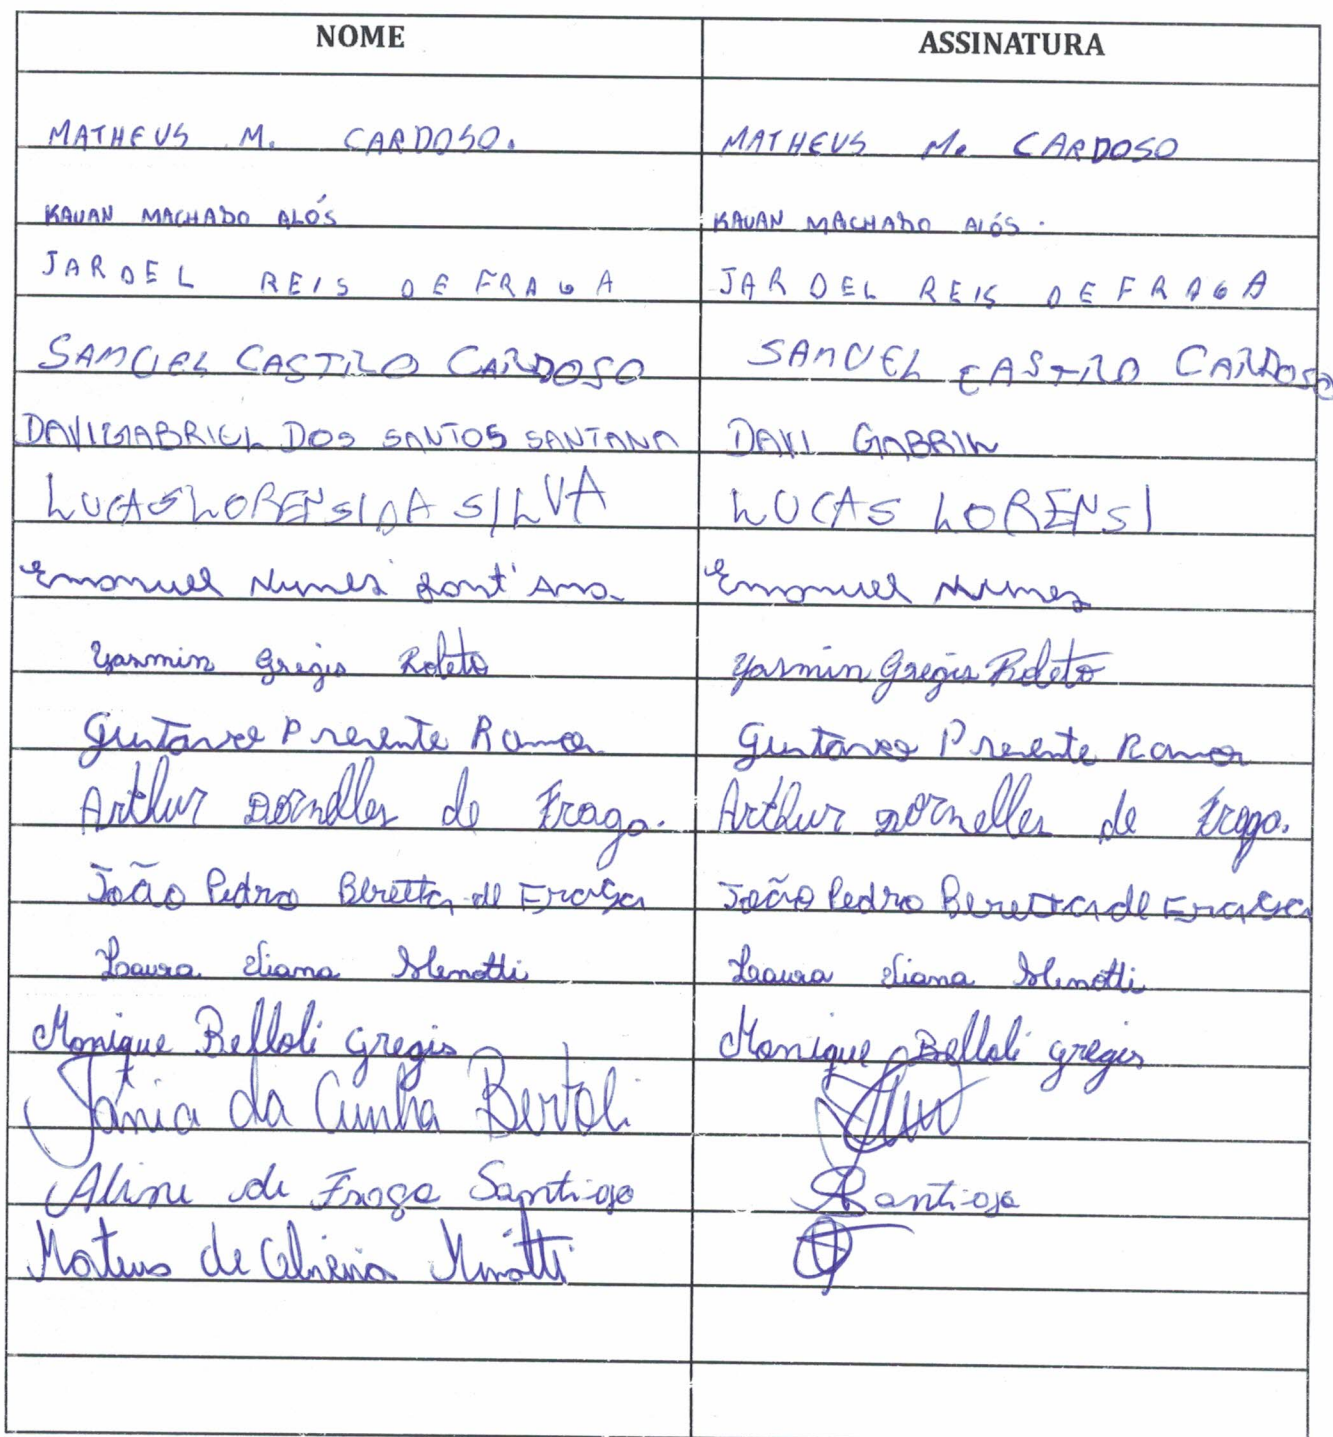 NOME ASSINATURA
MATHEUS M. CARDOSO. MATHEUS M. CARDOSO
KAUAN MACHADO ALÓS KAUAN MACHADO ALÓS.
JARDEL REIS DE FRAGA JARDEL REIS DE FRAGA
SAMUEL CASTRO CARDOSO SAMUEL CASTRO CARDOSO
DAVI GABRIEL DOS SANTOS SANTANA DAVI GABRIEL
LUCAS LORENSI DA SILVA LUCAS LORENSI
Emanuel Nunes Sant'Ana Emanuel Nunes
Yasmin Gregis Roleto Yasmin Gregis Roleto
Gustavo Presente Ramos Gustavo Presente Ramos
Arthur Dornelles de Fraga. Arthur Dornelles de Fraga.
João Pedro Beretta de Fraga João Pedro Beretta de Fraga
Laura Eliana Menotti Laura Eliana Menotti
Monique Belloli Gregis Monique Belloli Gregis
Tânia da Cunha Bertoli
Aline de Fraga Santiago Santiago
Mateus de Oliveira